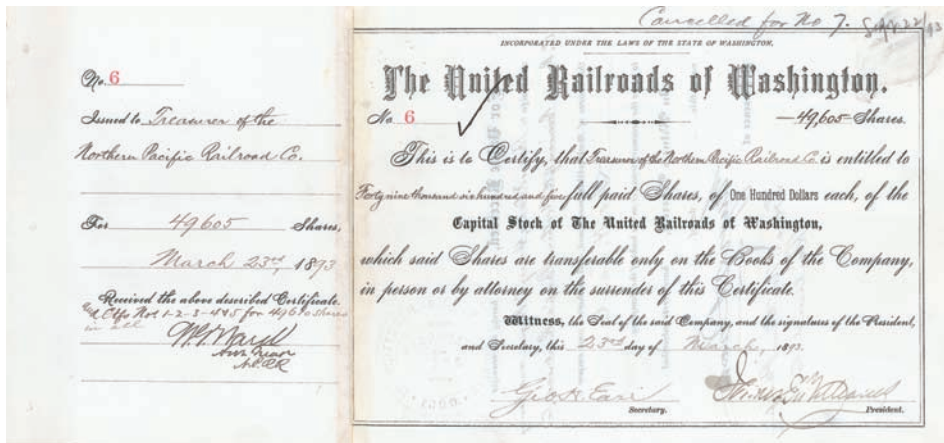 Cancelled for No 7. Sept 22/93
No. 6
Issued to Treasurer of the
Northern Pacific Railroad Co.
For 49605 Shares,
March 23rd, 1893
Received the above described Certificate.
Ctfs Nos 1-2-3-4&5 for 49610 shares
in all
INCORPORATED UNDER THE LAWS OF THE STATE OF WASHINGTON.
The United Railroads of Washington.
No 6 —49,605— Shares.
This is to Certify, that Treasurer of the Northern Pacific Railroad Co. is entitled to
Forty nine thousand six hundred and five full paid Shares, of One Hundred Dollars each, of the
Capital Stock of The United Railroads of Washington,
which said Shares are transferable only on the Books of the Company,
in person or by attorney on the surrender of this Certificate.
Witness, the Seal of the said Company, and the signatures of the President,
and Secretary, this 23rd day of March, 1893.
Geo H. Earl
Secretary. President.